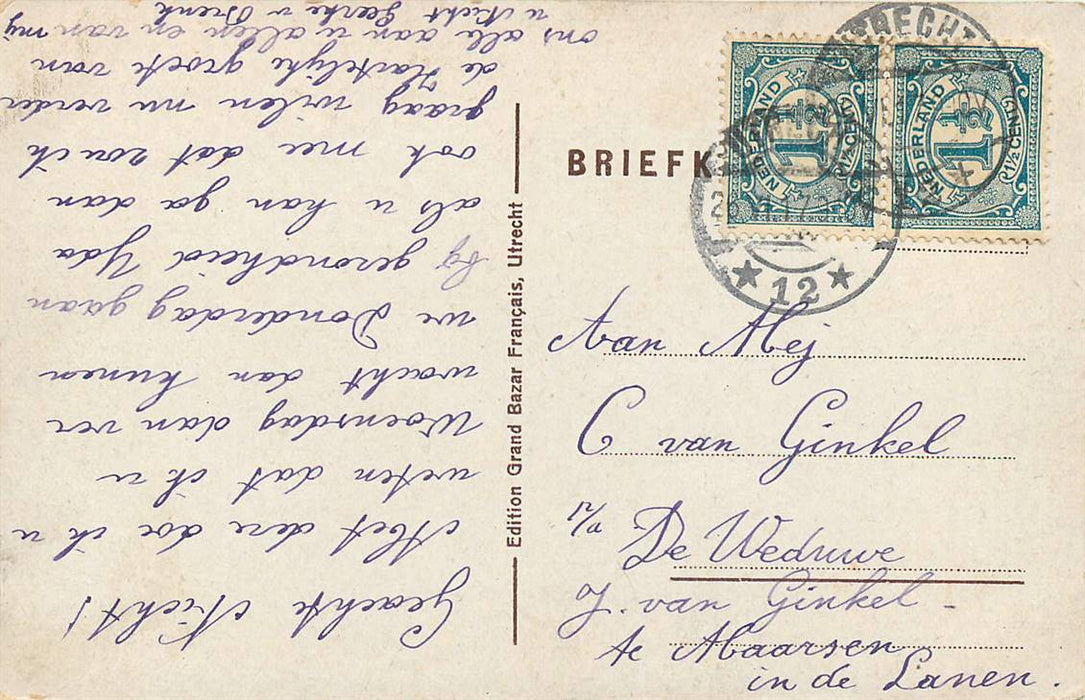 Geachte Nicht!
Met deze doe ik u
weten dat ik u
Woensdag dan ver
wacht dan kunnen
we Donderdag gaan
bij gezondheid Yda
als u kan ga dan
ook mee dat zou ik
graag willen nu verder
de Hartelijke groete van
ons alle aan u allen en van mij
u Nicht Geertje v
Edition Grand Bazar Français, Utrecht
BRIEFK
UTRECHT
NEDERLAND
1½
1½ CENT
NEDERLAND
1½
1½ CENT
★ 12 ★
Aan Mej
C van Ginkel
p/a De Weduwe
J. van Ginkel -
te Maarsen
in de Lanen.